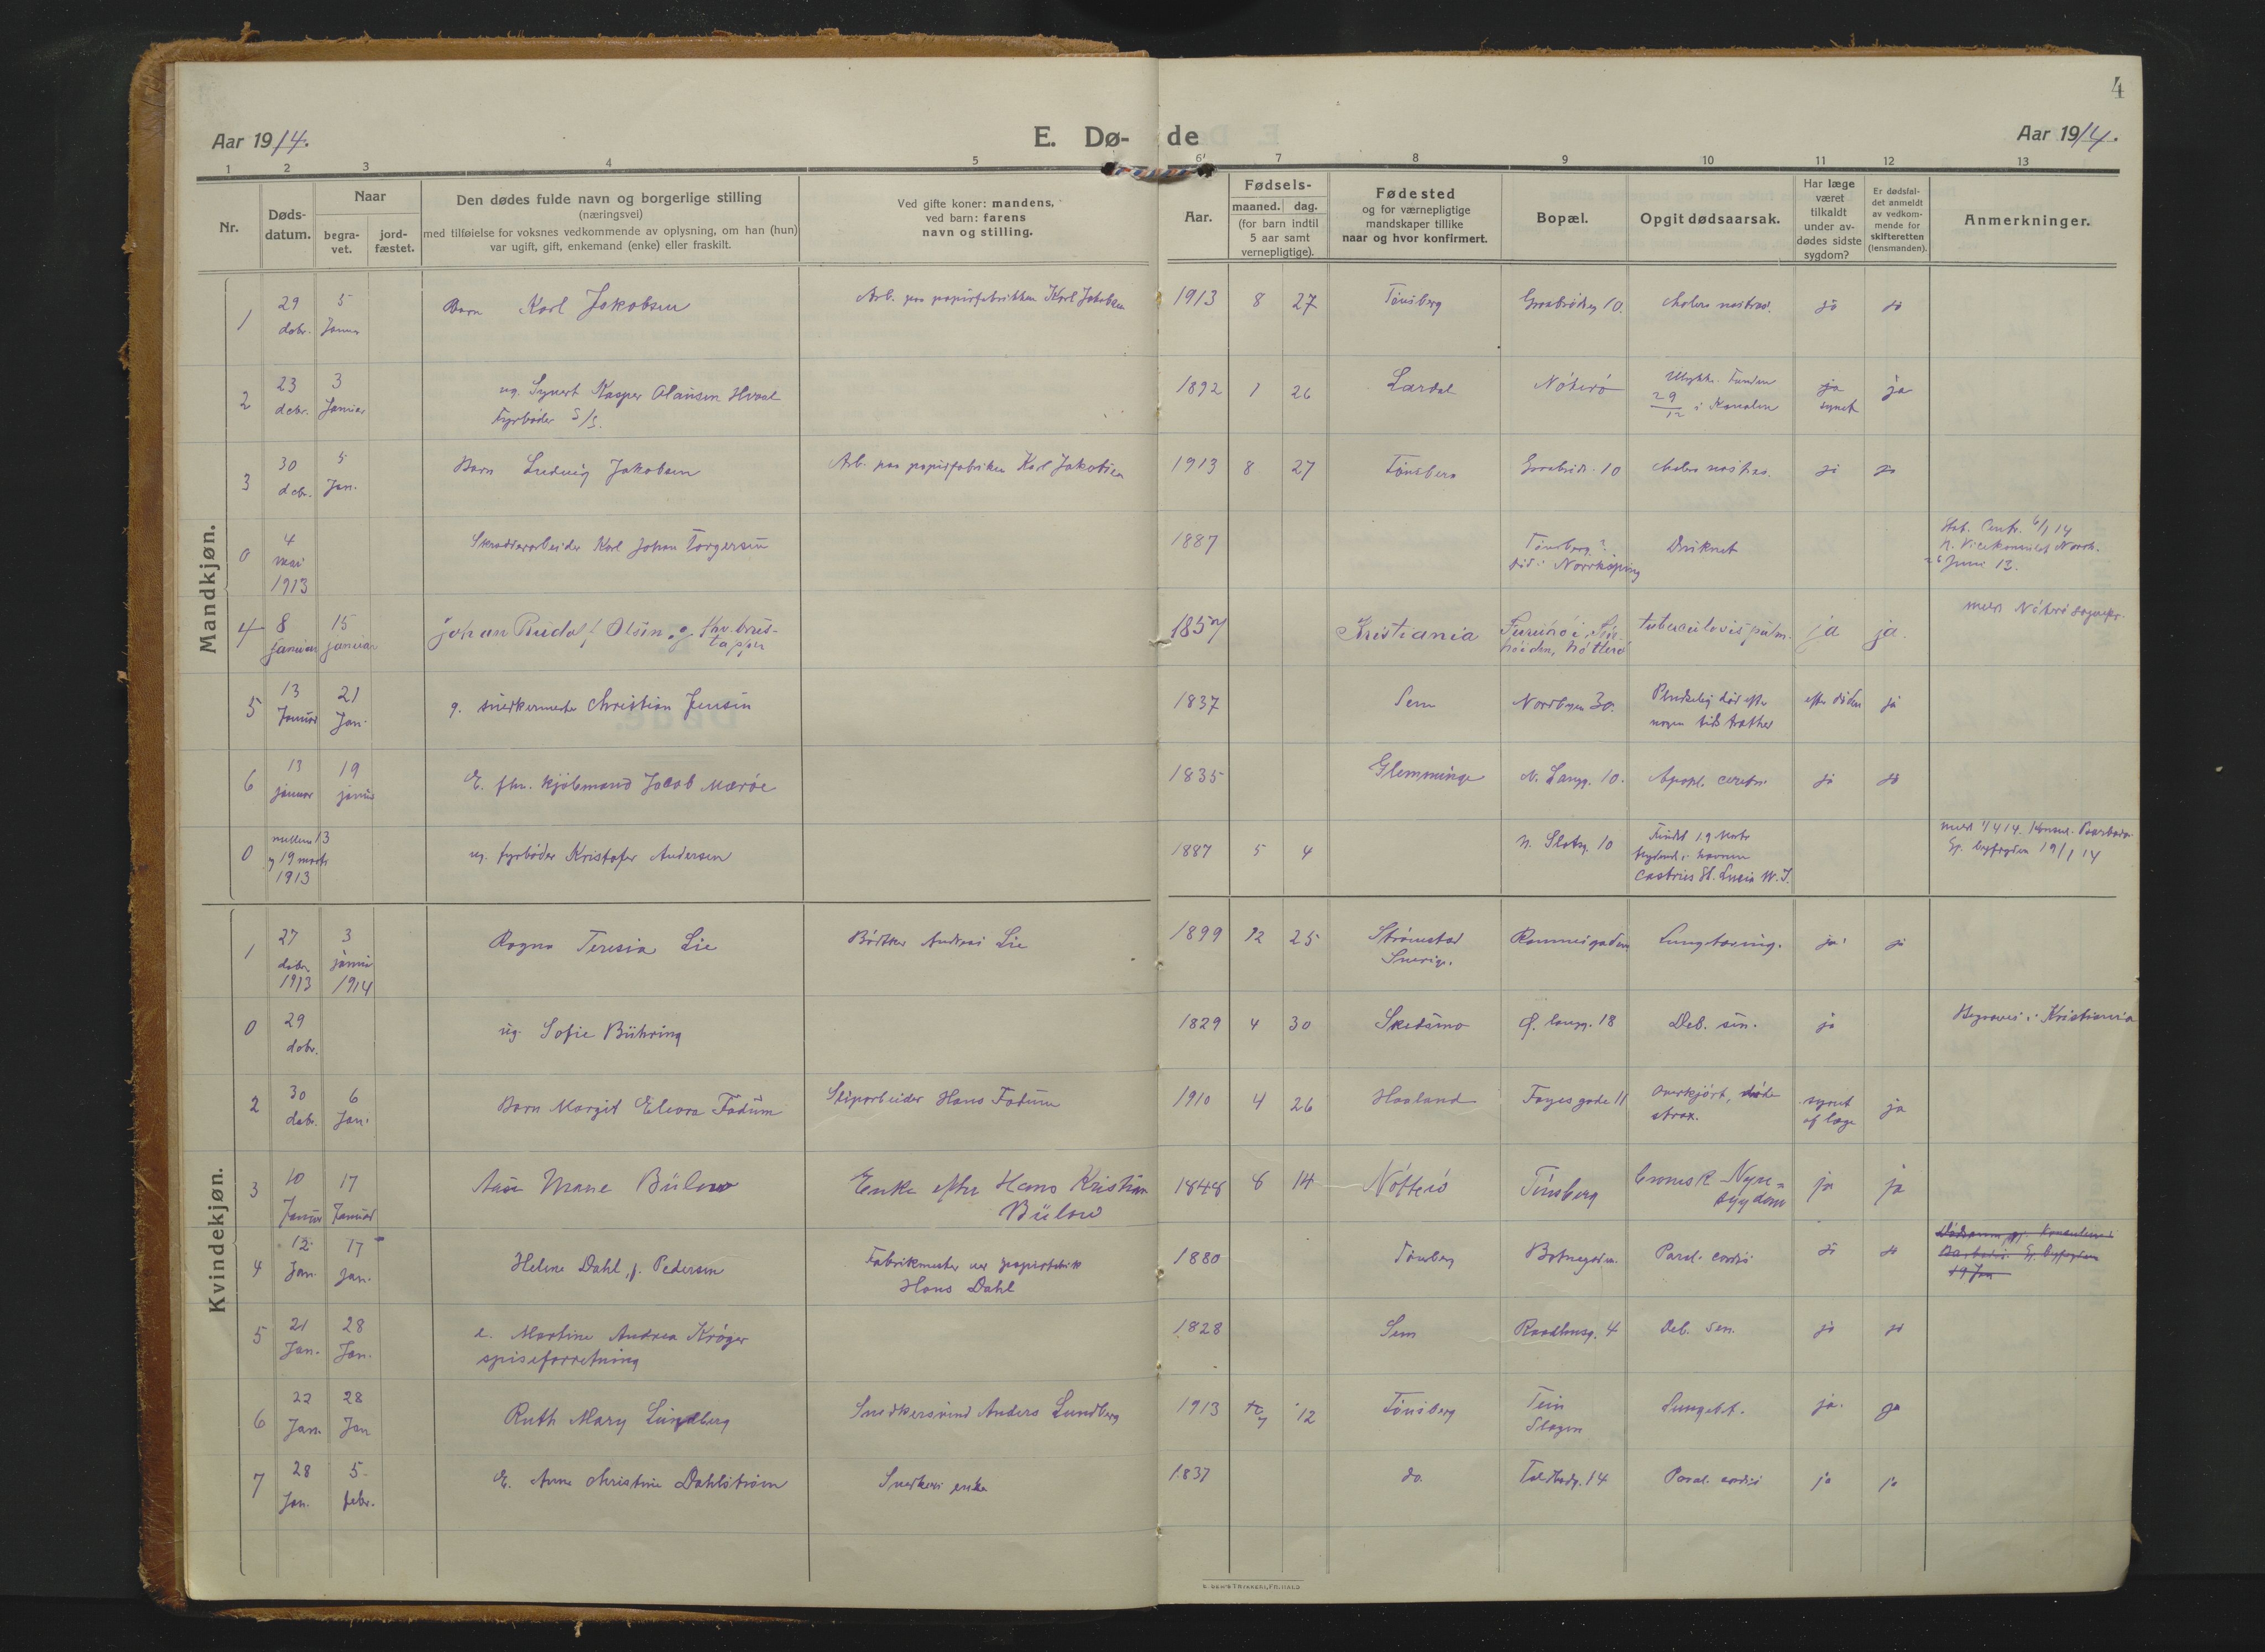 4
Aar 1914.
E. Dø-de
Aar 1914.
1 2 3 4 5 6 7 8 9 10 11 12 13
Nr.
Døds-
datum.
Naar
begra-
vet.
jord-
fæstet.
Den dødes fulde navn og borgerlige stilling
(næringsvei)
med tilføielse for voksnes vedkommende av oplysning, om han (hun)
var ugift, gift, enkemand (enke) eller fraskilt.
Ved gifte koner: mandens,
ved barn: farens
navn og stilling.
Aar.
Fødsels-
maaned. dag.
(for barn indtil
5 aar samt
vernepligtige).
Fødested
og for værnepligtige
mandskaper tillike
naar og hvor konfirmert.
Bopæl.
Opgit dødsaarsak.
Har læge
været
tilkaldt
under av-
dødes sidste
sygdom?
Er dødsfal-
det anmeldt
av vedkom-
mende for
skifteretten
(lensmanden).
Anmerkninger.
Mandkjøn.
1 29 debr. 5 Januar Barn Karl Jakobsen Arb. paa papirfabrikken Karl Jakobsen 1913 8 27 Tönsberg 10. cholera nostras. ja ja
2 23 debr. 3 Januar ug. Kasper Olausen Hvaal
Fyrböder S/S.
1892 1 26 Lardal Nöterö Ulykke. Funden
29/12 i Kanalen
ja
synet
ja
3 30 debr. 5 Jan. Barn Ludvig Jakobsen Arb. paa papirfabriken Karl Jakobsen 1913 8 27 Tönsberg 10 cholera nostras. ja ja
0 4 mai 1913 Skrædderarbeider Karl Johan Torgersen 1887 Tönsberg?
Norrköping
Druknet
Stat. Centr. 6/1 14
Vicekonsulat Norrk.
26 Juni 13.
4 8 januar 15 januar Johan Rudolf Olsen, g. brus-
tapper
1857 Kristiania
höiden, Nötterö
tuberculosis pulm. ja ja.
5 13 Januar 21 Jan. g. snedkermester Christian Jensen 1837 Sem Nordbyen 30. Pludselig död efter
nogen tids træthet
efter döden ja
6 13 januar 19 januar E. fhv. kjöbmand Jacob Maröe 1835 Glemminge N. Langg. 10. Apopl. cerebri ja ja
0 mellem 13
og 19 marts
1913
ug. fyrböder Kristofer Andersen 1887 5 4 N. Slotsg. 10 Fundet 19 Marts
flydende i havnen
Castries St. Lucia W. I.
19/1 14
Kvindekjøn.
1 27 debr. 1913 3 januar 1914 Ragna Teresia Lie Bödtker Andreas Lie 1899 12 25 Strömstad
Sverige.
Rammesgaden Lungtæring. ja ja
0 29 debr. ug. Sofie Bühring 1829 4 30 Skedsmo langg. 18 Deb. sen. ja Begraves i Kristiania
2 30 debr. 6 Jan. Barn Margit Eleora Fadum Sliparbeider Hans Fadum 1910 4 26 Haaland Fayesgade 11 overkjört, döde
strax.
synet
af læge
ja
3 10 Januar 17 Januar Aase Marie Bülow Enke efter Hans Kristian
Bülow
1848 8 14 Nötterö Tönsberg Cronisk Nyre=
sygdom
ja ja
4 12 Jan. 17 jan. Helene Dahl, f. Pedersen Fabrikmester papirfabrik
Hans Dahl
1880 Tönsberg Botnegaden Paral. cordis ja ja
19 Jan
5 21 Jan. 28 Jan. e. Martine Andrea Kröger
spiseforretning
1828 Sem Raadhusg. 4 Deb. sen. ja ja
6 22 Jan. 28 Jan Ruth Mary Lundberg Snedkersvend Anders Lundberg 1913 7 12 Tönsberg Tein
Slagen
Lungebet. ja. ja
7 28 Jan. 5. febr. E. Anne Christine Dahlström Snedkers enke 1837 do. Toldbodg. 14 Paral. cordis ja ja